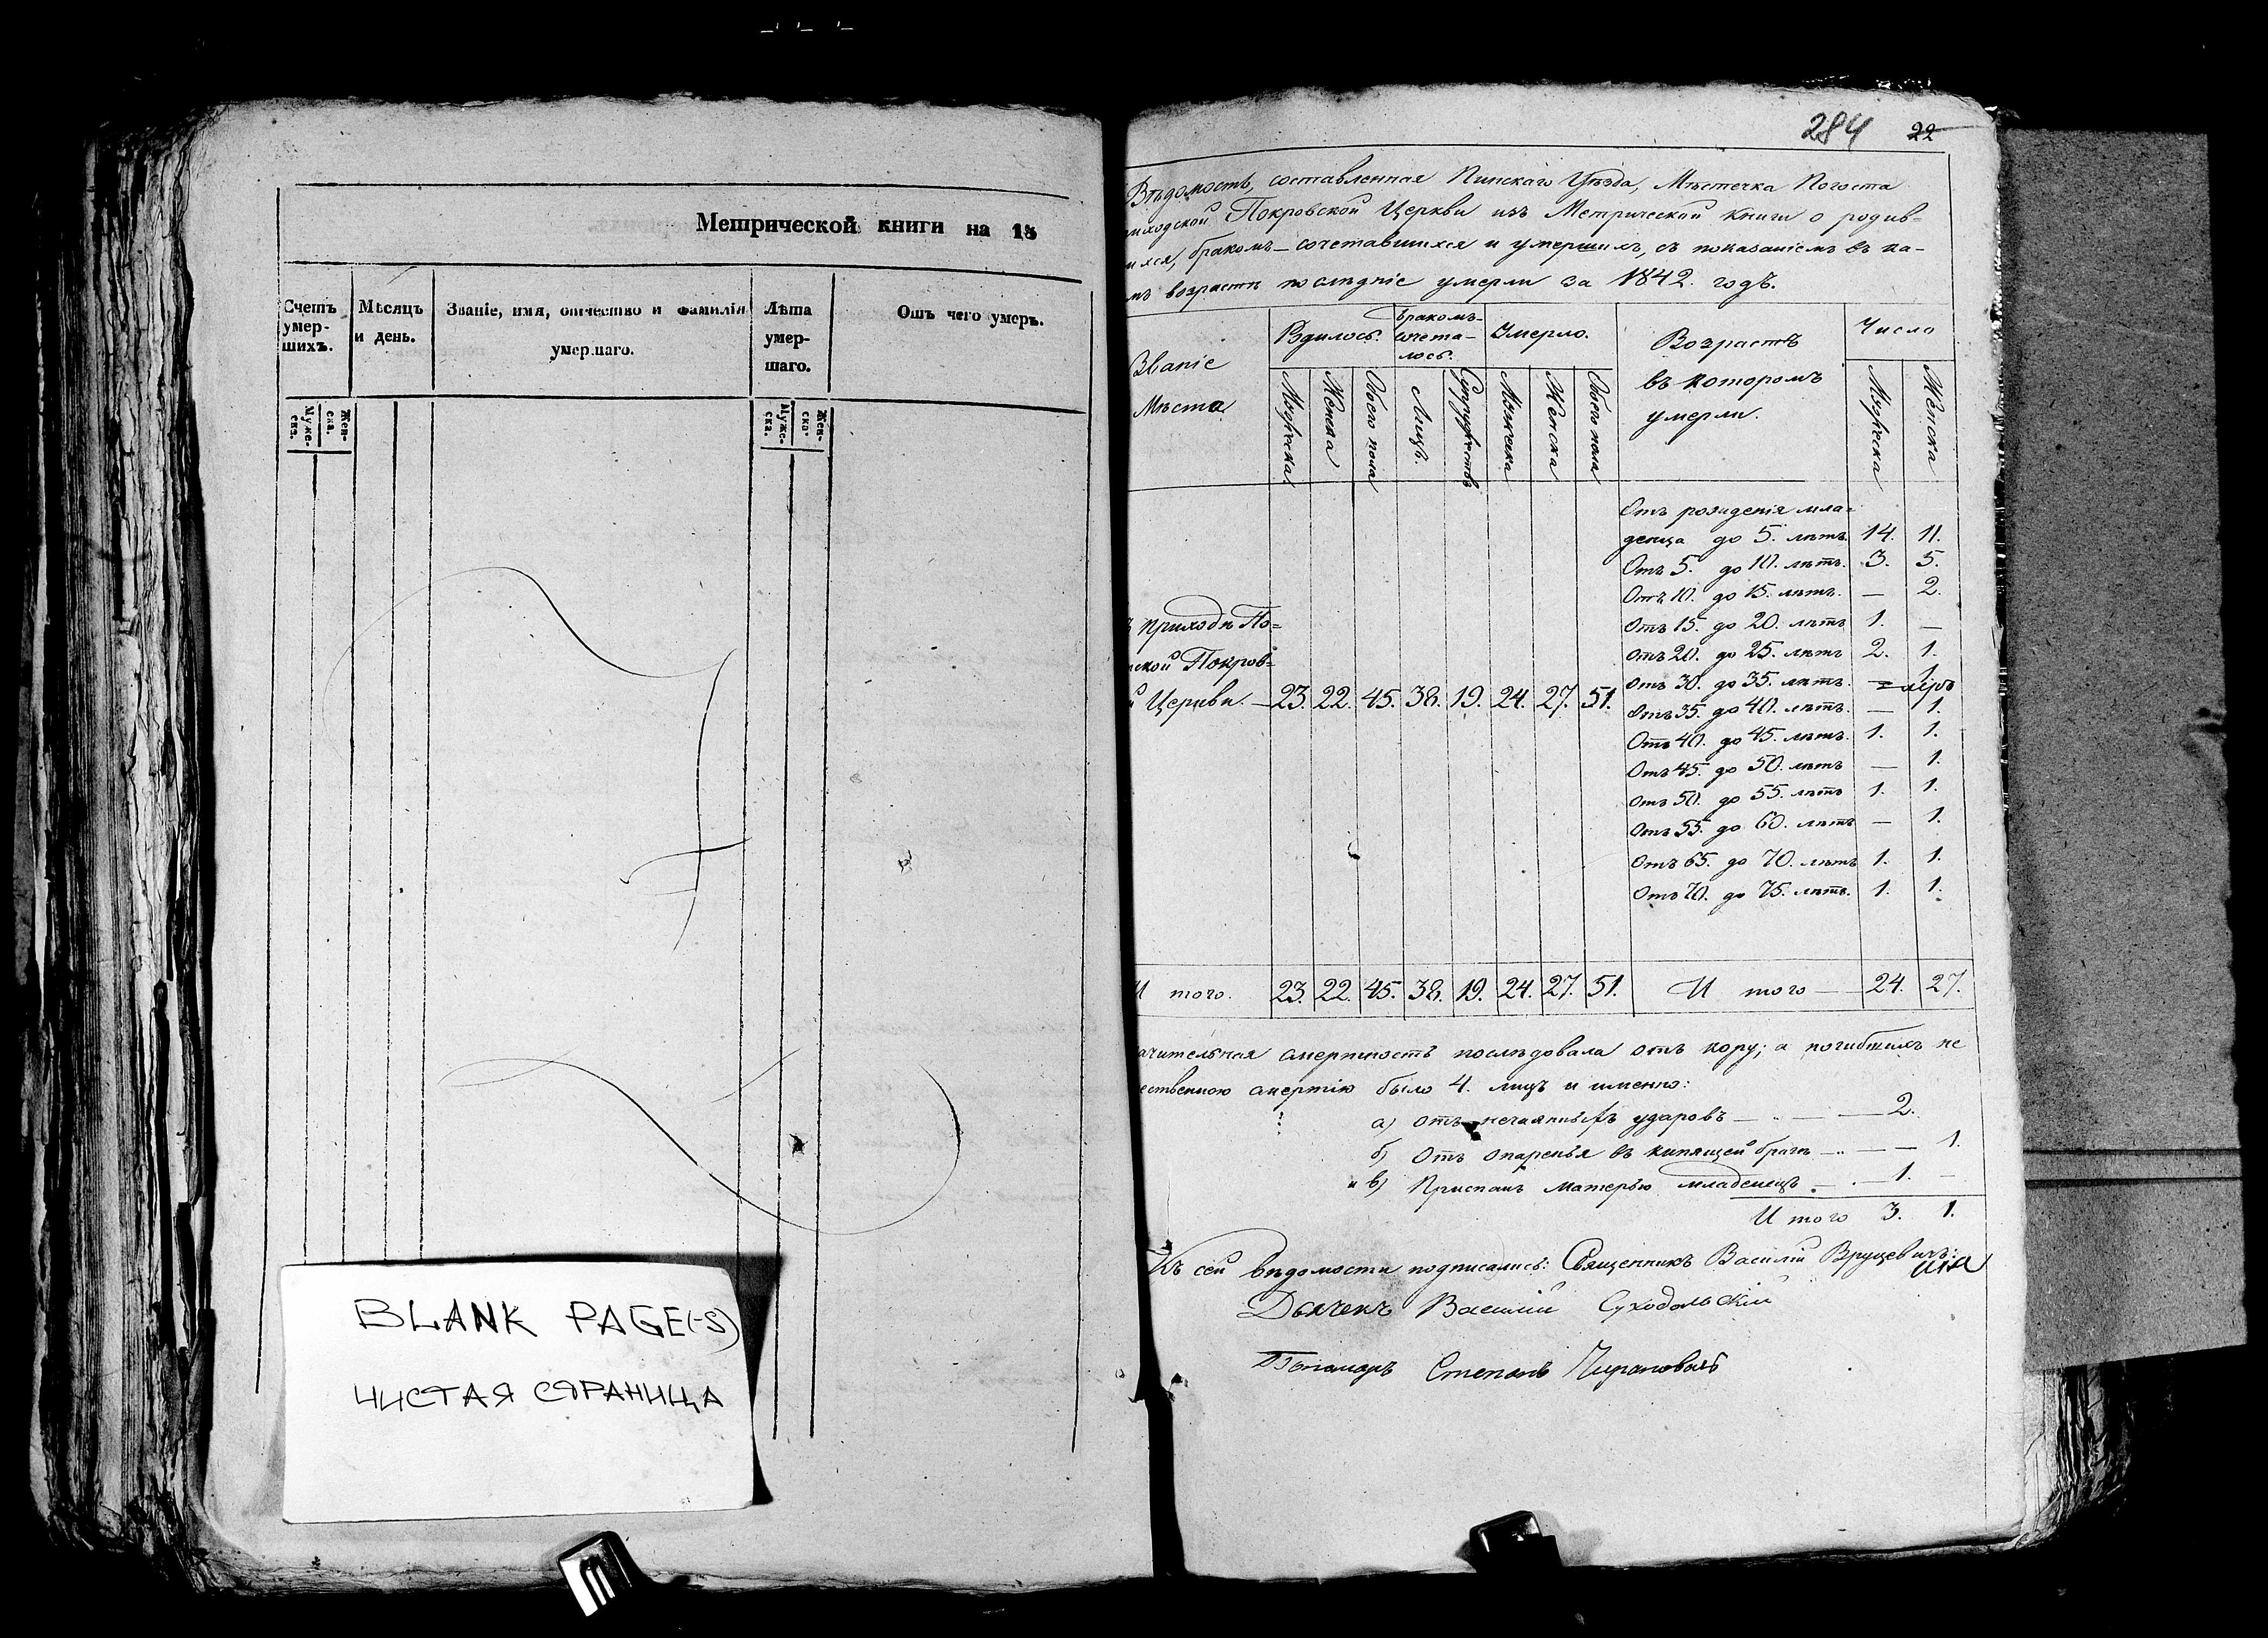 Метрической книги на 18
Счетъ умер-шихъ.
Мѣсяцъ и день.
Званіе, имя, отчество и фамилія умершаго.
Лѣта умер-шаго.
Отъ чего умеръ.
Муже-ска.
Жен-ска.
Муже-ска.
Жен-ска.
BLANK PAGE(-S)
ЧИСТАЯ СТРАНИЦА
284 22
Вѣдомость, составленная Пинскаго Уѣзда, Мѣстечка Погоста
иходской Покровской Церкви изъ Метрической книги о родив=
ихся, бракомъ-сочетавшихся и умершихъ, съ показаніемъ въ ка-
мъ возрастѣ послѣдніе умерли за 1842. годъ.
Званіе
Мѣста
Бракомъ-сочета-лось.
Умерло.
Возрастъ
въ которомъ
умерли.
Число
Мужеска
Женска
Обоего пола
Лицъ.
Супружествъ
Мужеска
Женска
Обоего пола
Мужеска
Женска
Отъ рожденія мла=
денца до 5. лѣтъ 14. 11.
Отъ 5. до 10. лѣтъ. 3. 5.
Отъ 10. до 15. лѣтъ. — 2.
Отъ 15. до 20. лѣтъ 1. —
Отъ 20. до 25. лѣтъ 2. 1.
Отъ 30. до 35. лѣтъ. — 1.
Отъ 35. до 40. лѣтъ. — 1.
Отъ 40. до 45. лѣтъ. 1. 1.
Отъ 45. до 50. лѣтъ — 1.
Отъ 50. до 55. лѣтъ 1. 1.
Отъ 55. до 60. лѣтъ — 1.
Отъ 65. до 70. лѣтъ 1. 1.
Отъ 70. до 75. лѣтъ. 1. 1.
ъ приходѣ По=
ской Покров=
й Церкви. — 23. 22. 45. 38. 19. 24. 27. 51.
И того. 23. 22. 45. 38. 19. 24. 27. 51. И того — 24. 27.
ачительная смертность послѣдовала отъ кору; а погибшихъ не
ественною смертію было 4. лицъ и именно:
а) отъ нечаянныхъ ударовъ — 2.
б) Отъ опаренья въ кипящей брагѣ — 1.
и в) Приспанъ матерью младенецъ — 1. —
И того 3. 1.
Къ сей вѣдомости подписались: Священникъ Василій Вруцевичъ:
Дьячекъ Василій Суходольскій
Пономарь Степанъ